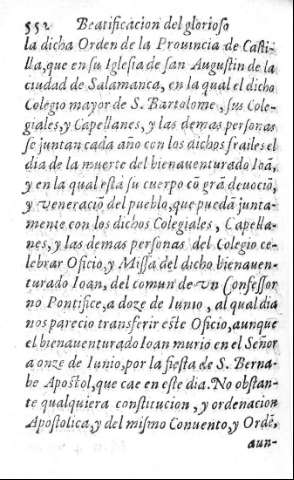 552 Beatificacion del glorioso
la dicha Orden de la Prouincia de Casti-
lla, que en su Iglesia de san Augustin de la
ciudad de Salamanca, en la qual el dicho
Colegio mayor de S. Bartolome, sus Cole-
giales, y Capellanes, y las demas personas
se juntan cada año con los dichos frailes el
dia de la muerte del bienauenturado Ioã,
y en la qual està su cuerpo cõ grã deuociõ,
y veneraciõ del pueblo, que puedã junta-
mente con los dichos Colegiales, Capella-
nes, y las demas personas del Colegio ce-
lebrar Oficio, y Missa del dicho bienauen-
turado Ioan, del comun de vn Confessor
no Pontifice, a doze de Iunio, al qual dia
nos parecio transferir este Oficio, aunque
el bienauenturado Ioan murio en el Señor
a onze de Iunio, por la fiesta de S. Berna-
be Apostol, que cae en este dia. No obstan-
te qualquiera constitucion, y ordenacion
Apostolica, y del mismo Conuento, y Ordẽ,
aun-